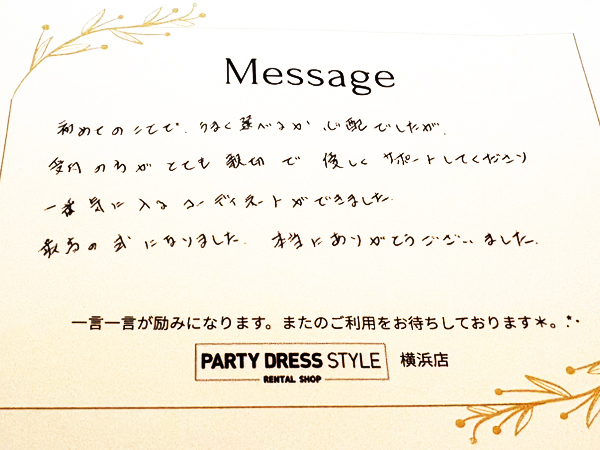 Message
初めてのことで、うまく選べるか心配でしたが、
受付の方がとても親切で優しくサポートしてくださり
一番気に入るコーディネートができました。
最高の式になりました。本当にありがとうございました。
一言一言が励みになります。またのご利用をお待ちしております＊。:*･
PARTY DRESS STYLE 横浜店
RENTAL SHOP